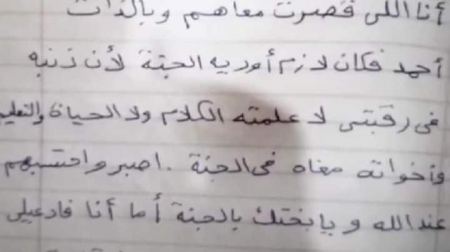 أنا اللى قصرت معاهم وبالذات
أحمد فكان لازم أوديه الجنة لأن ذنبه
فى رقبتى لا علمته الكلام ولا الحياة والتعليم
وأخواته معاه فى الجنة . اصبر واحتسبهم
عند الله ويا بختك بالجنة أما أنا فادعيلى